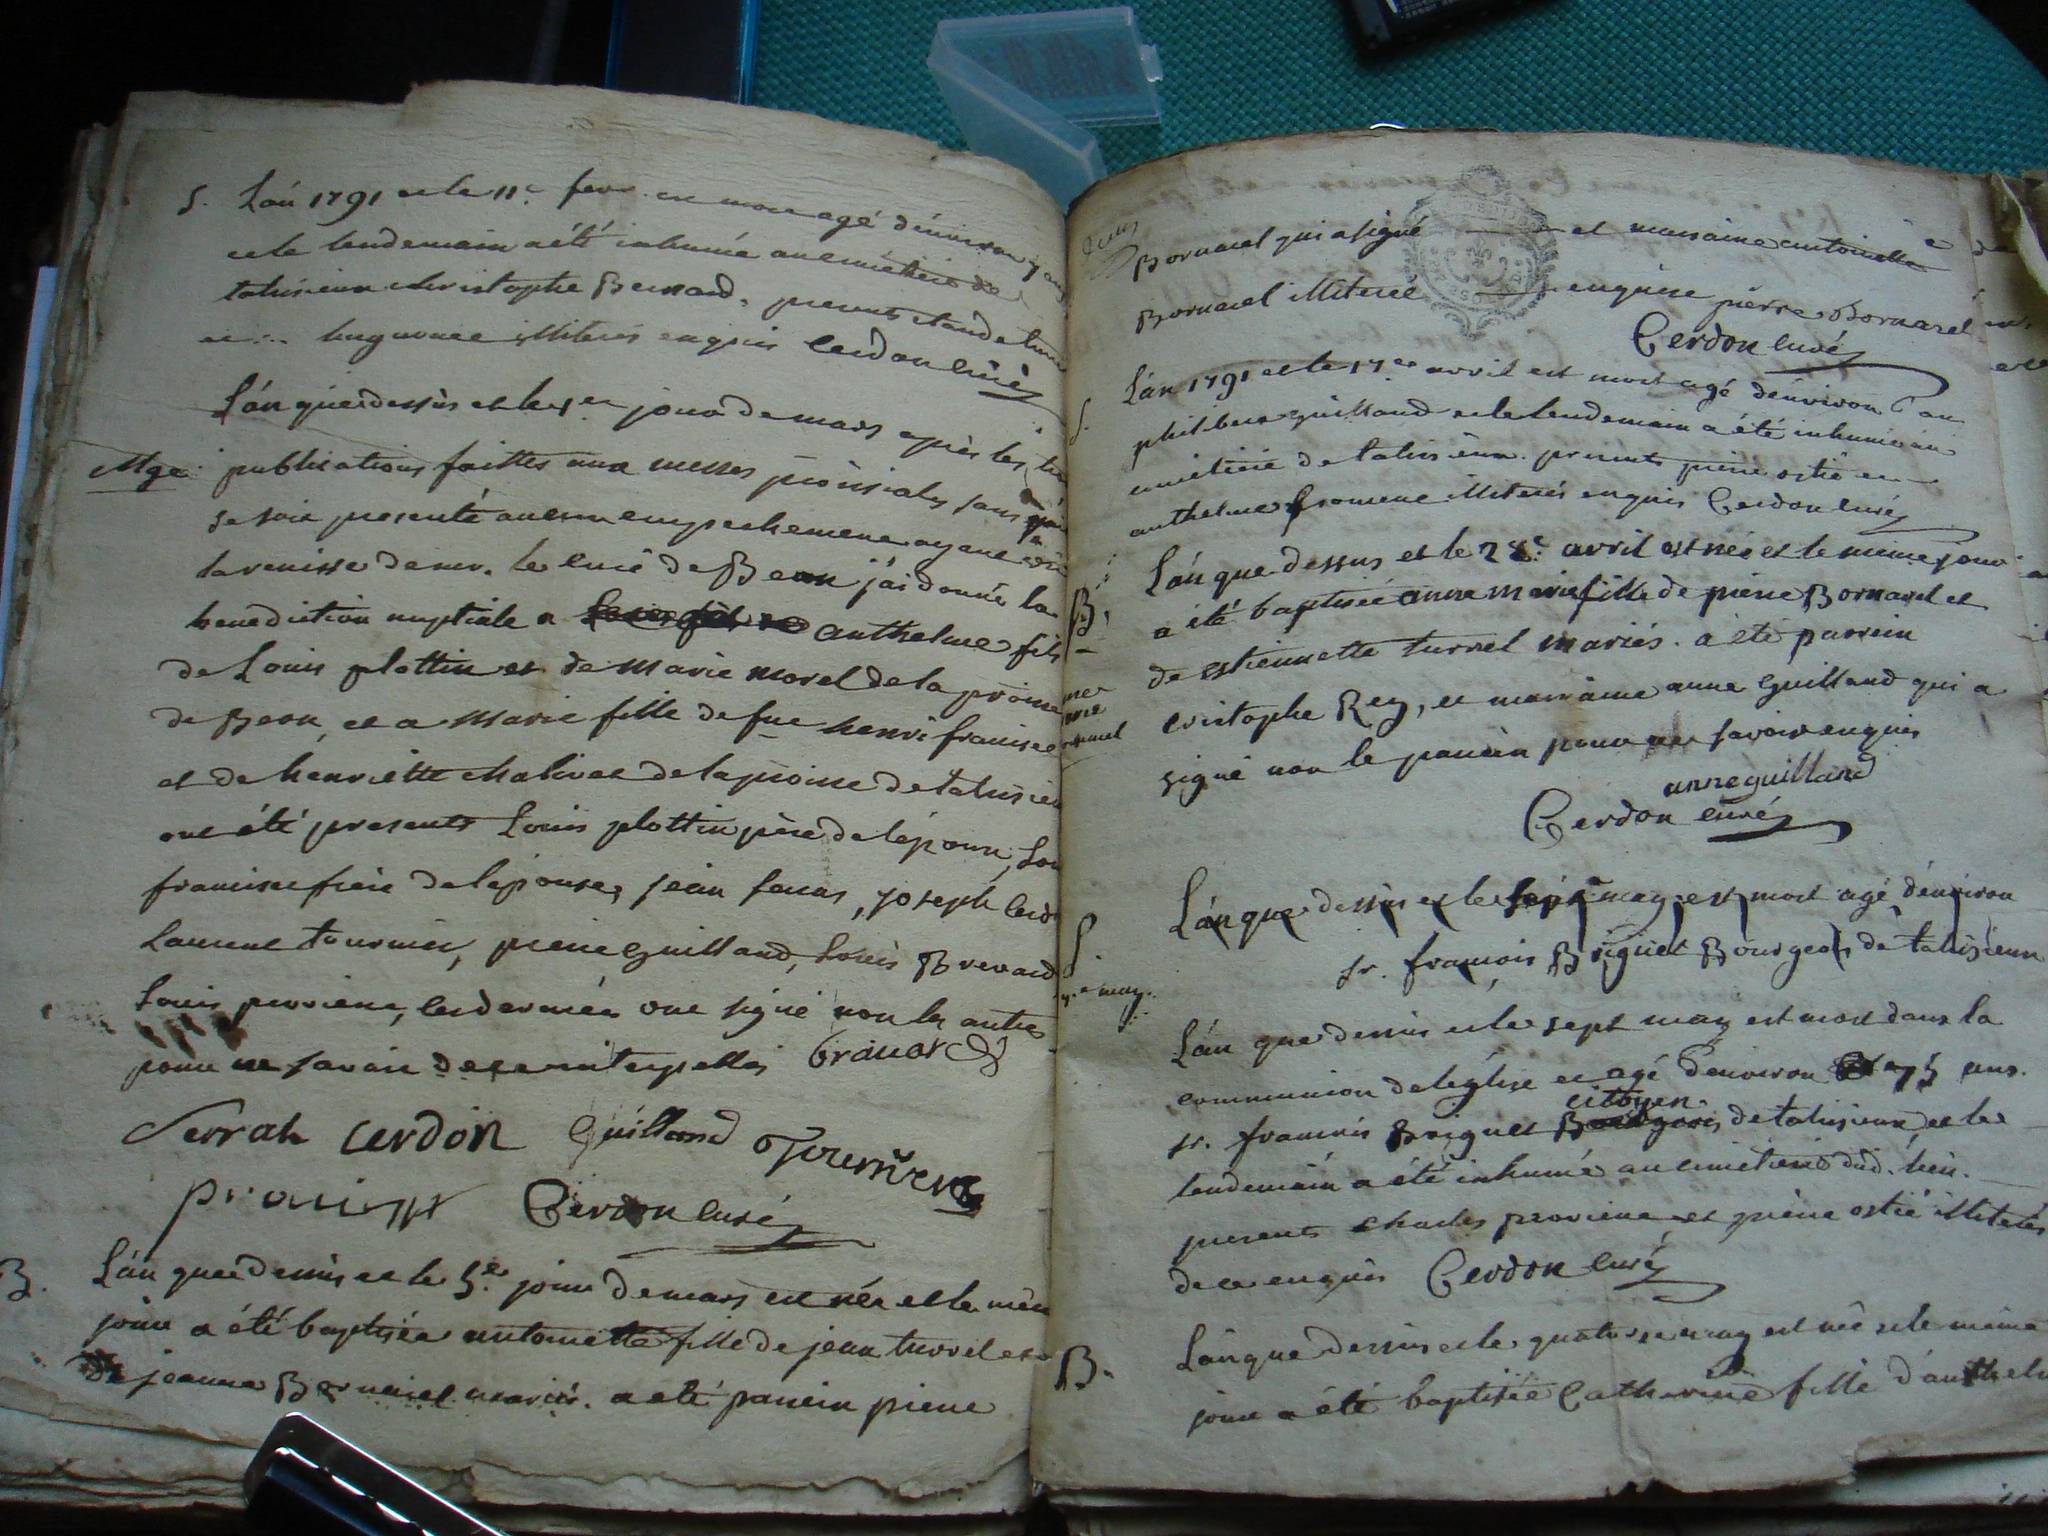 S. L'an 1791 et le 11e fevr. est mort agé d'environ 7 ans
et le lendemain a été inhumé au cimetiere de
talissieux christophe Bernard. presents claude
et huguenne illiterés enquis Cerdon curé
L'an que dessus et le 1er jour de mars après les
Mge. publications faittes aux messes paroissiales sans
se soit presenté aucun empechement ayant
la remisse de mr. le curé de Beon j'ai donné la
benediction nuptiale a anthelme fils
de Louis plottin et de Marie morel de la paroisse
de Beon, et a Marie fille de fue henri francisce
et de henriette chalives de la paroisse de talissieu
ont été presents Louis plottin père de l'epoux,
francisce frere de l'epouse, jean serras, joseph
Laurent tournier, pierre Guilland, Louis Brevard
Louis perriene, les derniers ont signé non les autres
pour ne savoir de ce interpellés brauard
Serrah cerdon Guilland Tournier
Cerdon curé
B. L'an que dessus et le 5e jour de mars est née et le même
jour a été baptisée antoinette fille de jean turrel et
de jeanne Bornarel mariés. a été parrein pierre
Bornarel qui a signé et marraine antoinette
Bornarel illiteré enquise pierre Bornarel
Cerdon curé
S. L'an 1791 et le 17e avril est mort agé d'environ an
philibert guilland et le lendemain a été inhumé au
cimetière de talissieux. presents pierre ostié et
anthelme fromene illiterés enquis Cerdon curé
L'an que dessus et le 28e avril est née et le même jour
B. a été baptisée anne marie fille de pierre Bornarel et
de estiennette turrel mariés. a été parrein
cristophe Rey, et marraine anne Guilland qui a
signé non le parrein pour ne savoir enquis
anne guilland
Cerdon curé
L'an que dessus et le sept may est mort agé d'environ
sr. françois Briguet Bourgeois de talissieux
S.
7e may.
L'an que dessus et le sept may est mort dans la
communion de l'église et agé d'environ 75 ans.
citoyen
sr. francois Briguet Bourgeois de talissieux, et le
lendemain a été inhumé au cimetiere dud. lieu.
presents charles perriene et pierre ostié illiterés
de ce enquis Cerdon curé
B. L'an que dessus et le quatorse may est née et le même
jour a été baptisée Catherine fille d'anthelm